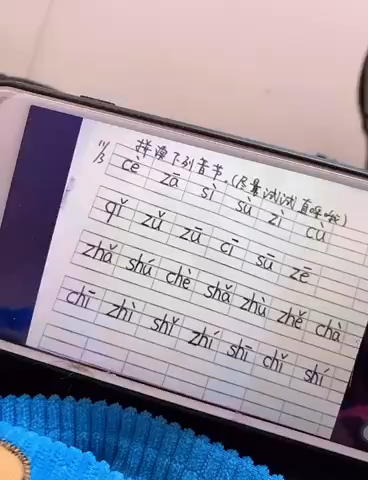 11/13 拼读下列音节。(尽量试试直呼哦)
cè zā sì sù zì cù
qǐ zǔ zū cī sū zē
zhǎ shú chè shǎ zhù zhě chà
chī zhì shǐ zhí shī chǐ shí